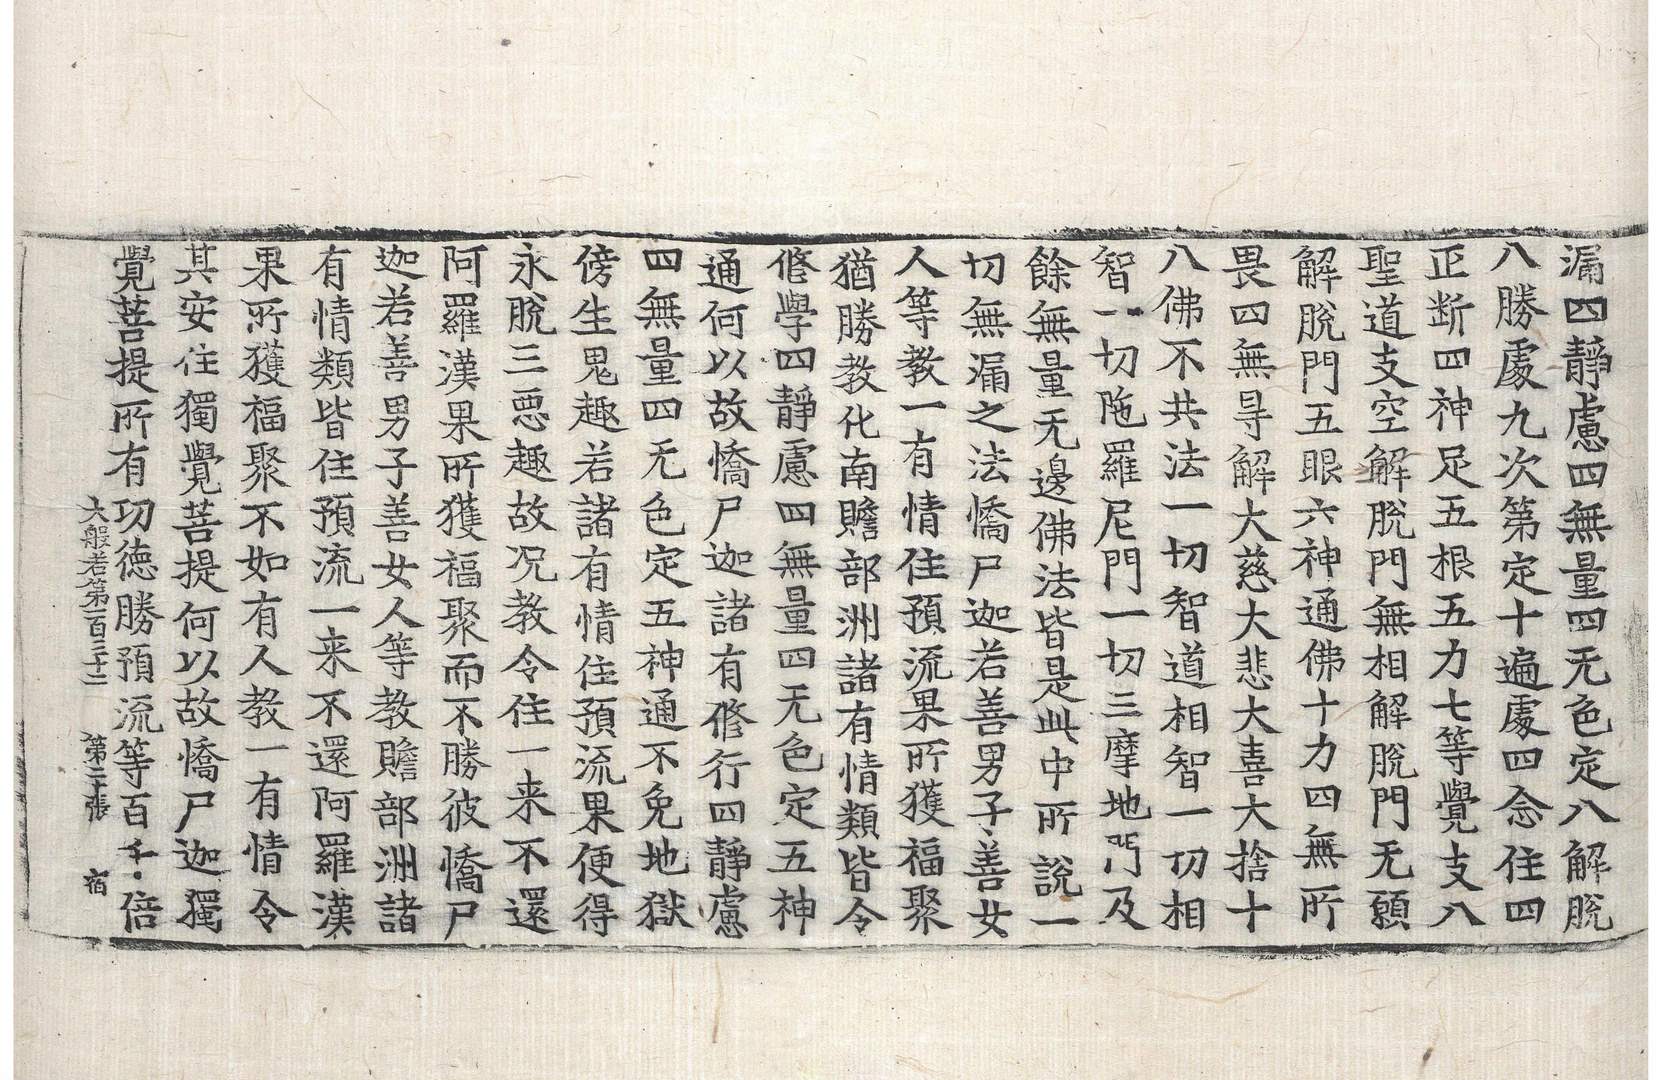 漏四靜慮四無量四无色定八解脫
八勝處九次第定十遍處四念住四
正斷四神足五根五力七等覺支八
聖道支空解脫門無相解脫門无願
解脫門五眼六神通佛十力四無所
畏四無㝵解大慈大悲大喜大捨十
八佛不共法一切智道相智一切相
智一切陁羅尼門一切三摩地門及
餘無量无邊佛法皆是此中所說一
切無漏之法憍尸迦若善男子善女
人等教一有情住預流果所獲福聚
猶勝教化南贍部洲諸有情類皆令
修學四靜慮四無量四无色定五神
通何以故憍尸迦諸有修行四靜慮
四無量四无色定五神通不免地獄
傍生鬼趣若諸有情住預流果便得
永脫三惡趣故況教令住一来不還
阿羅漢果所獲福聚而不勝彼憍尸
迦若善男子善女人等教贍部洲諸
有情類皆住預流一来不還阿羅漢
果所獲福聚不如有人教一有情令
其安住獨覺菩提何以故憍尸迦獨
覺菩提所有功德勝預流等百千倍
大般若第百三十二 第二十張 宿